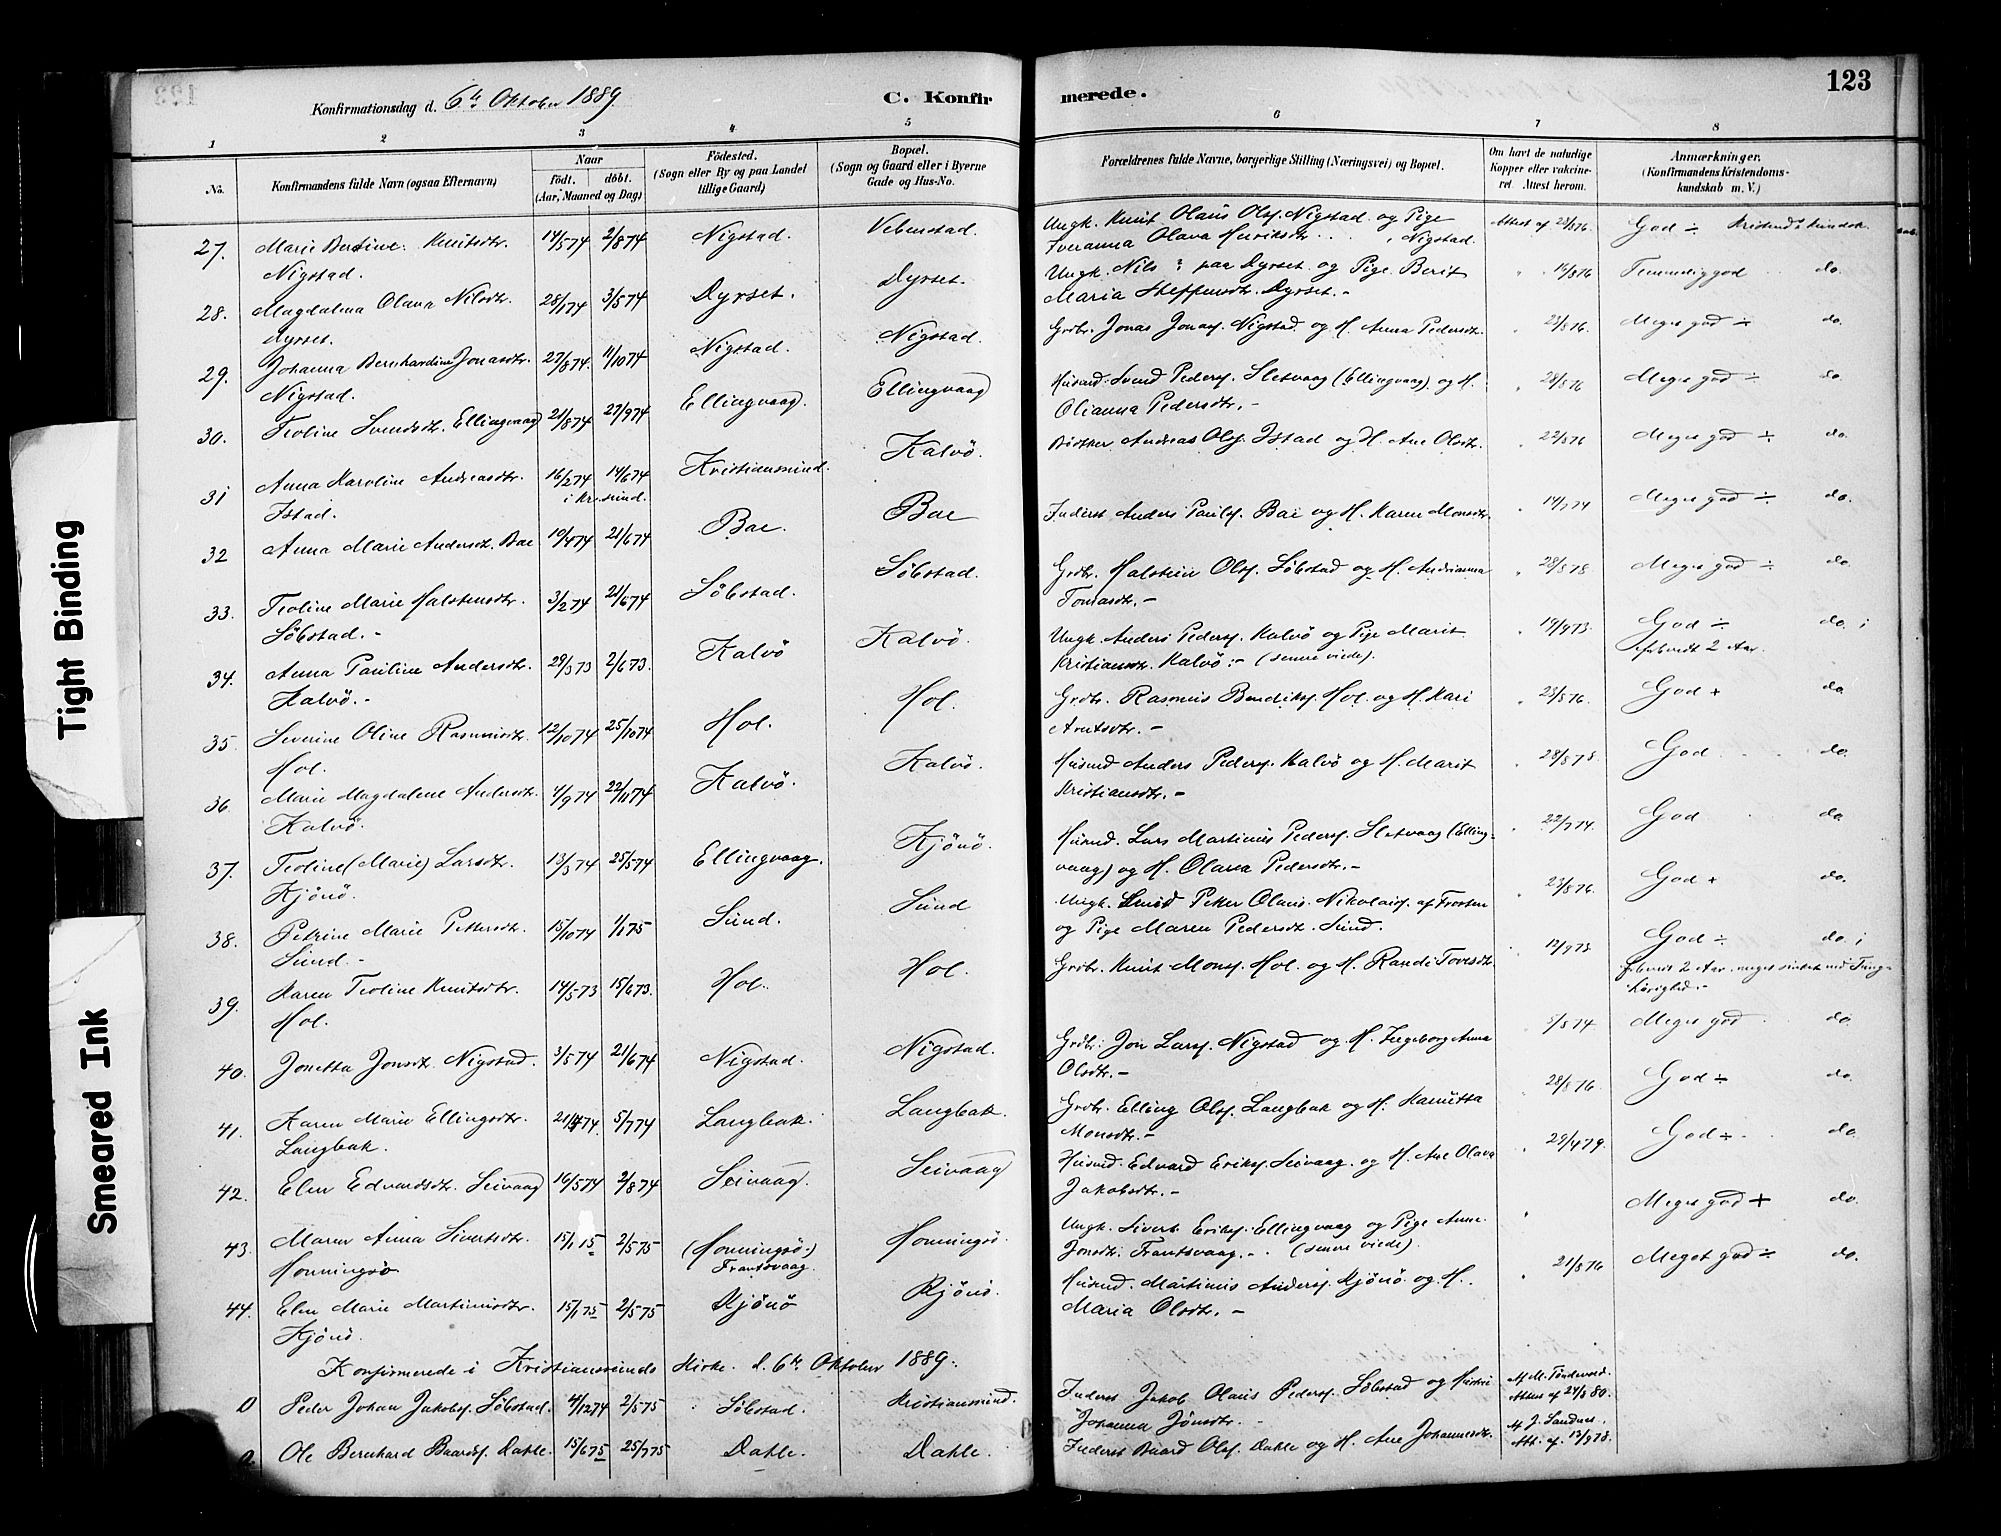 123
Konfirmationsdag d. 6te Oktober 1889
C. Konfirmerede.
1 2 3 4 5 6 7 8
No.
Konfirmandens fulde Navn (ogsaa Efternavn)
Naar
Födt. döbt.
(Aar, Maaned og Dag)
Födested.
(Sogn eller By og paa Landet
tillige Gaard)
Bopæl.
(Sogn og Gaard eller i Byerne
Gade og Hus-No.
Forældrenes fulde Navne, borgerlige Stilling (Næringsvei) og Bopæl.
Om havt de naturlige
Kopper eller vakcine-
ret. Attest herom.
Anmærkninger.
(Konfirmandens Kristendoms-
kundskab m. V.)
27. Marie Bertine Knutsdtr. 14/5 74 2/8 74 Nigstad. Vebenstad. Ungk. Knut Olaus Olss. Nigstad og Pige Attest af 23/8 76 God ÷ Kristend. kundsk.
Nigstad. Iveranna Olava Henriksdtr. Nigstad.
28. Magdalena Olava Nilsdtr. 28/1 74 3/5 74 Dyrset. Dyrset. Ungk. Nils ? paa Dyrset og Pige Berit " 14/8 76 Temmelig god do.
Dyrset. Maria Steffensdtr. Dyrset. -
29. Johanna Bernhardine Jonasdtr. 27/8 74. 11/10 74 Nigstad. Nigstad. Grdbr. Jonas Jonass. Nigstad og H. Anna Pedersdtr. " 23/8 76. Meget god ÷ do.
Nigstad.
30. Teoline Svendsdtr. Ellingvaag 21/8 74 27/9 74 Ellingvaag. Ellingvaag Husmd. Svend Peders. Sletvaag (Ellingvaag) og H. " 28/8 76 Meget god ÷ do.
Olianna Pedersdtr. -
31 Anna Karoline Andreasdtr. 16/2 74 14/6 74 Kristiansund. Kalvö. Bödker Andreas Olss. Istad og H. Ane Olsdtr. " 22/8 76 Meget god ÷ do.
Istad. i Kr.sund.
32 Anna Marie Andersdt. Bae 19/4 74 21/6 74 Bae. Bae Inderst Anders Paulss. Bae og H. Karen Monsdtr. " 14/7 74 Meget god ÷ do.
33. Teoline Marie Halstensdtr. 3/2 74 21/6 74 Söbstad. Söbstad. Grdbr. Halstein Olss. Söbstad og H. Andrianna " 28/8 78. Meget god ÷ do.
Söbstad. - Tomasdtr. -
34. Anna Pauline Andersdtr. 29/3 73 2/6 73. Kalvö Kalvö. Ungk. Anders Peders. Kalvö og Pige Marit " 19/9 73. God ÷ do. i
Kalvö. - Kristiansdtr. Kalvö. - (senere viede). forberedt 2 Aar.
35. Severine Oline Rasmusdtr. 12/10 74 25/10 74 Hol. Hol. Grdbr. Rasmus Bendikss. Hol og H. Kari " 23/8 76. God + do.
Hol. Arntsdtr. -
36. Marie Magdalene Andersdtr. 4/9 74 22/11 74 Kalvö. Kalvö. Husmd Anders Peders. Kalvö og H. Marit " 28/8 78. God do.
Kalvö. Kristiansdtr. -
37. Teoline (Marie) Larsdtr. 13/3 74 25/5 74 Ellingvaag. Kjönö. Husmd. Lars Martinus Peders. Sletvaag (Elling- " 22/7 74. God do.
Kjönö. vaag) og H. Olava Pedersdtr. -
38. Petrine Marie Pettersdtr. 15/10 74 1/1 75 Sund. Sund Ungk. Petter Olaus Nikolais. af Frosten " 23/8 76. God + do.
Sund. - og Pige Maren Pedersdt. Sund.
39. Karen Teoline Knutsdtr. 14/5 73 15/6 73. Hol. Hol. Grdbr. Knut Monss. Hol. og H. Randi Toresdtr. " 12/9 78 God ÷ do. i
Hol. forberedt 2 Aar. meget sinket ved Tung-
hörighed. -
40. Jonetta Jonsdt. Nigstad. 3/5 74 21/6 74 Nigstad. Nigstad. Grdbr. Jon Larss. Nigstad og H. Ingeborg Anna 5/8 74 Meget god do.
Olsdtr. -
41. Karen Marie Ellingsdtr. 21/4 74. 5/7 74 Langbak. Langbak. Grdbr. Elling Olss. Langbak og H. Kanutta 28/8 76. God ÷ do.
Langbak. Monsdtr. -
42. Elen Edvardsdtr. Seivaag 16/5 74 2/8 74 Seivaag. Seivaag Husmd. Edvard Erikss. Seivaag. og H. Ane Olava " 29/4 79. God ÷ do.
Jakobsdtr. -
43. Maren Anna Sivertsdtr. 15/1 75 2/5 75 (Honningsö) Honningsö. Ungk. Sivert Erikss. Ellingvaag og Pige Anne " Meget god + do.
Honningsö Frantsvaag. Jonsdtr. Frantsvaag. - (senere viede).
44. Elen Marie Martinusdtr. 15/1 75 2/5 75 Kjönö Kjönö. Husmd. Martinus Anderss. Kjönö og H. " 21/8 76 Meget god ÷ do.
Kjönö. Maria Olsdtr. -
Konfirmerede i Kristiansunds Kirke. d. 6te Oktober 1889:
D Peder Johan Jakobs. Söbstad. 4/12 74 2/5 75 Söbstad. Kristiansund. Inderst Jakob Olaus Peders. Söbstad og Hustru Af M. Töndervold.
Johanna Jönsdtr. - Attest af 24/8 80.
Ole Bernhard Baards. Dahle. 15/6 75 25/7 75 Dahle. Dahle. Inderst Baard Olss. Dahle og H. Ane Johannesdtr. Af J. Sandnes.
Att. af 13/9 78.
Tight Binding
Smeared Ink